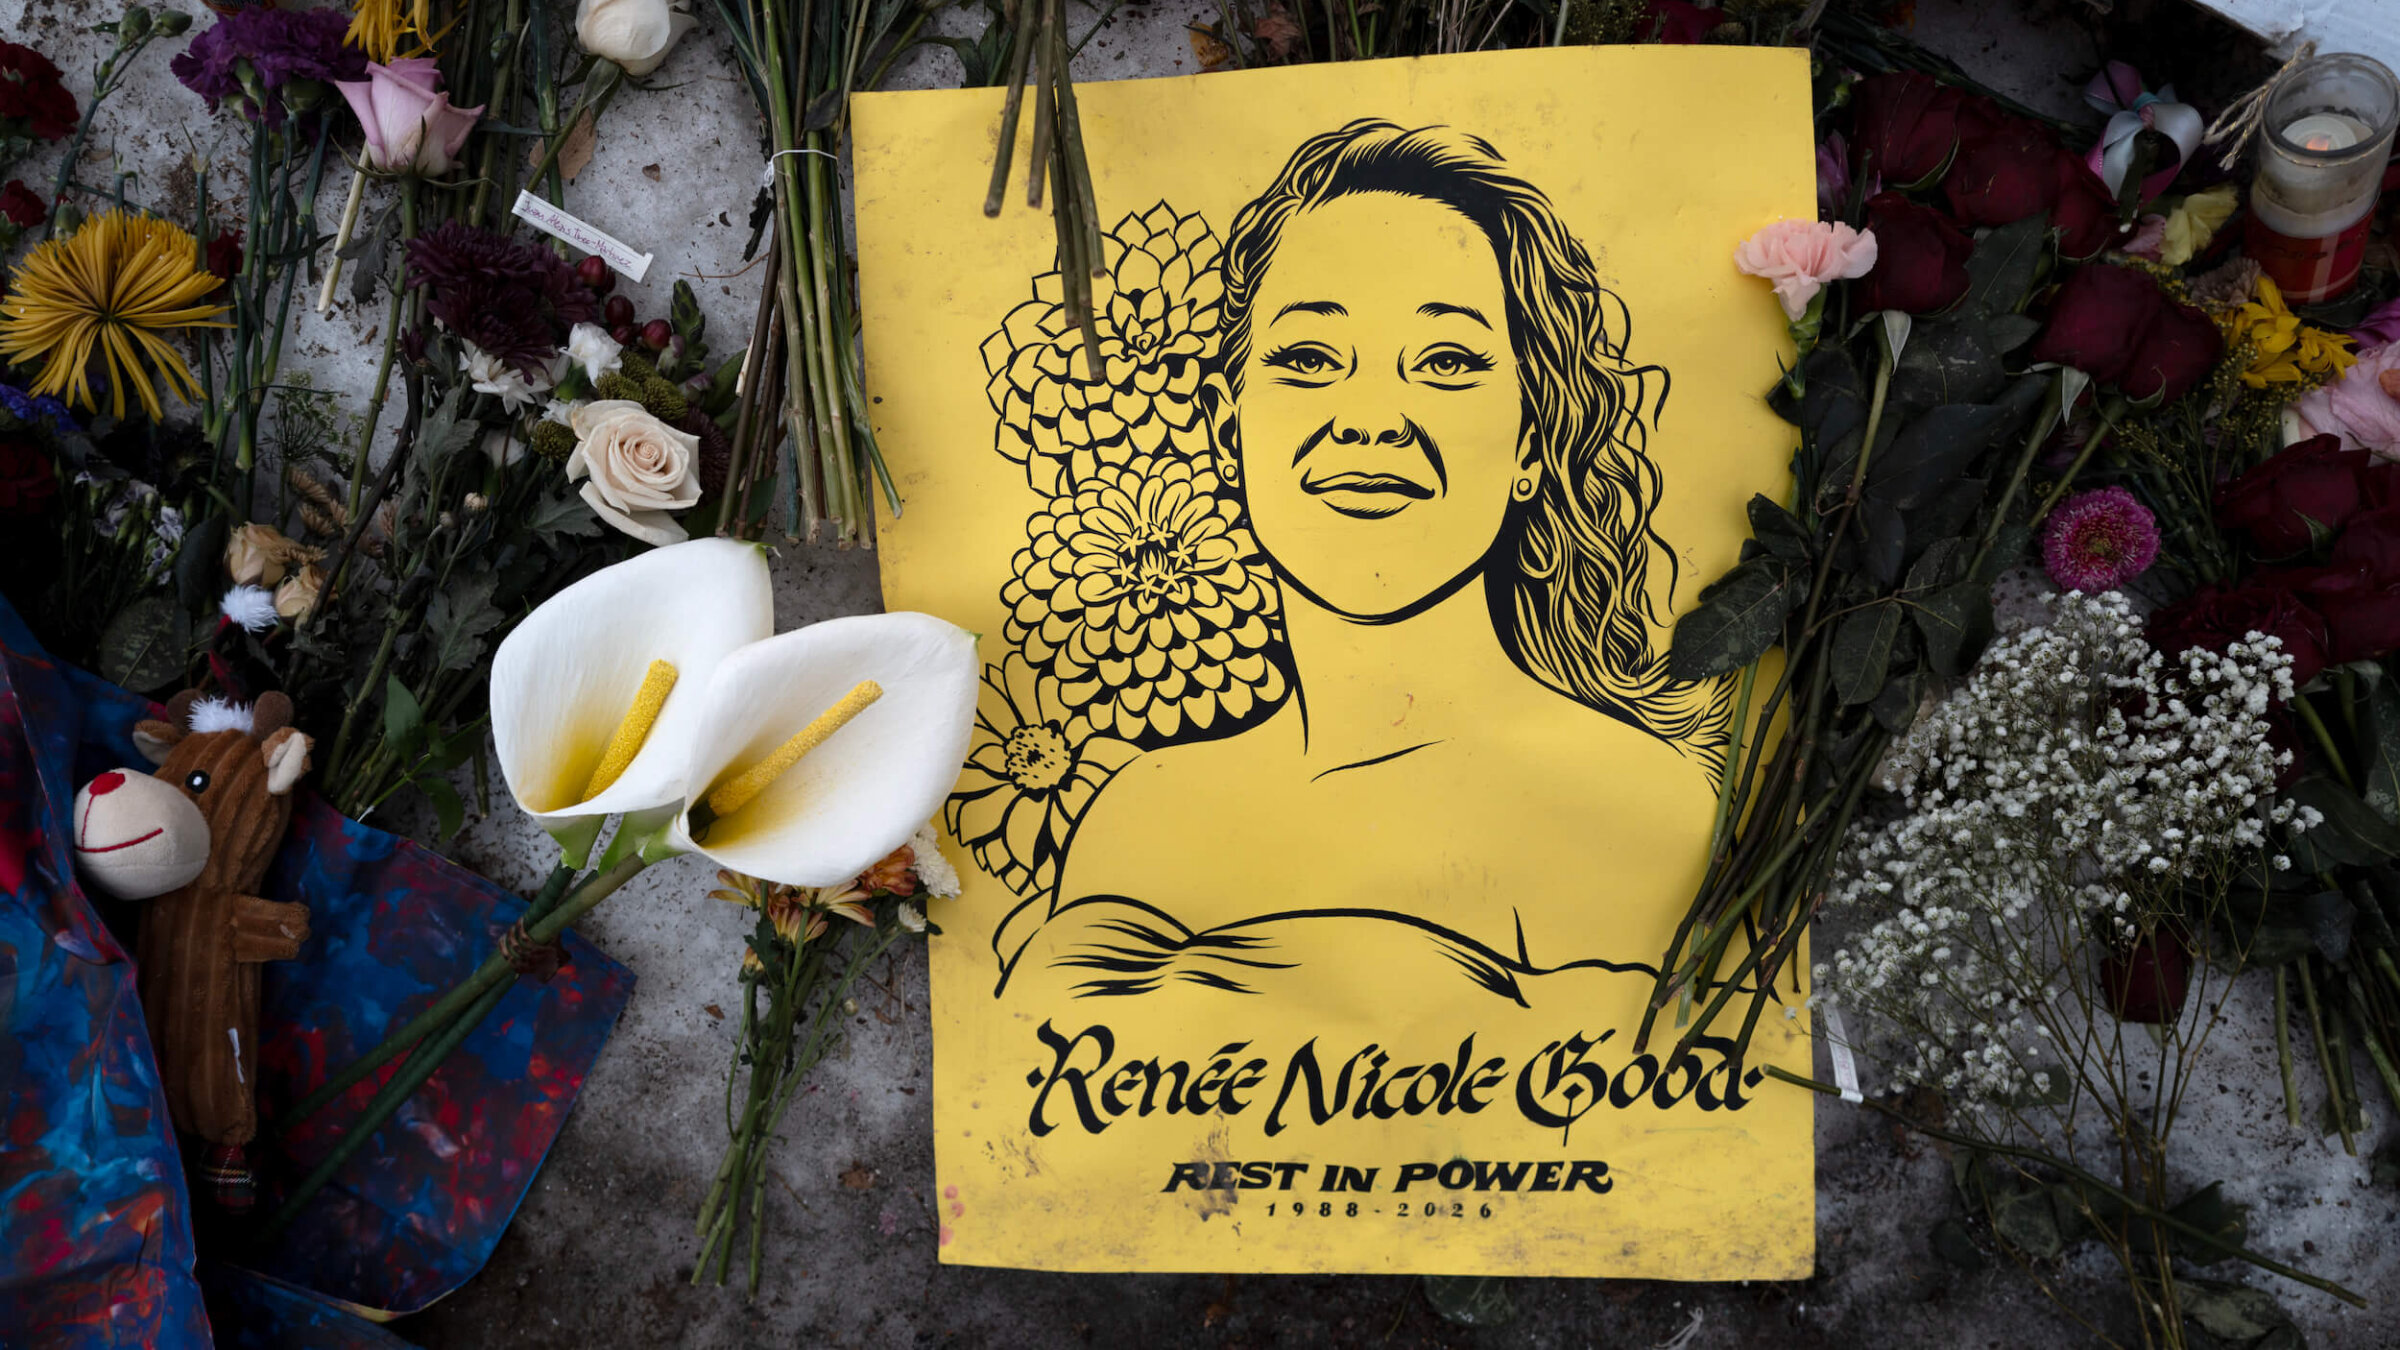 ·Renée Nicole Good·
REST IN POWER
1988-2026